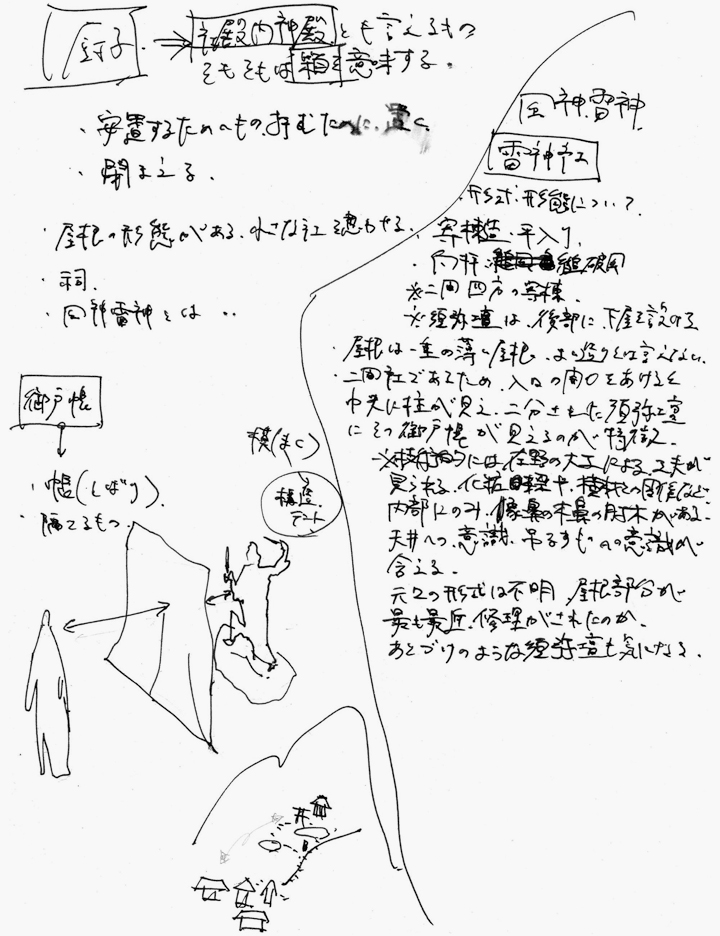 厨子 → 社殿内神殿とも言えるもの
そもそもは箱を意味する。
・安置するためのもの、拝むために、置く
・閉まえる。
・屋根の形態がある。小さな社を想わせる。
・祠。
・風神雷神とは‥
御戸帳
・帳(とばり)
・隔てるもの。
幕(まく)
テント
風神.雷神
雷神社
・形式・形態について
・寄棟造・平入り
・向拝:縋破風
※二間四方の寄棟。
※須弥壇は、後部に下屋を設ける
・屋根は一重の薄い屋根、
・二間社であるため、入口の開口をあけると
中央に柱が見え、二分された須弥壇
にその御戸帳が見えるのが特徴。
には、在野の大工による、工夫が
見られる。化粧
内部にのみ、の木鼻の肘木がある。
天井への意識、吊るすものへの意識が
含える。
元々の形式は不明、屋根部分が
最も最近、修理がされたのか、
あとづけのような須弥壇も気になる。